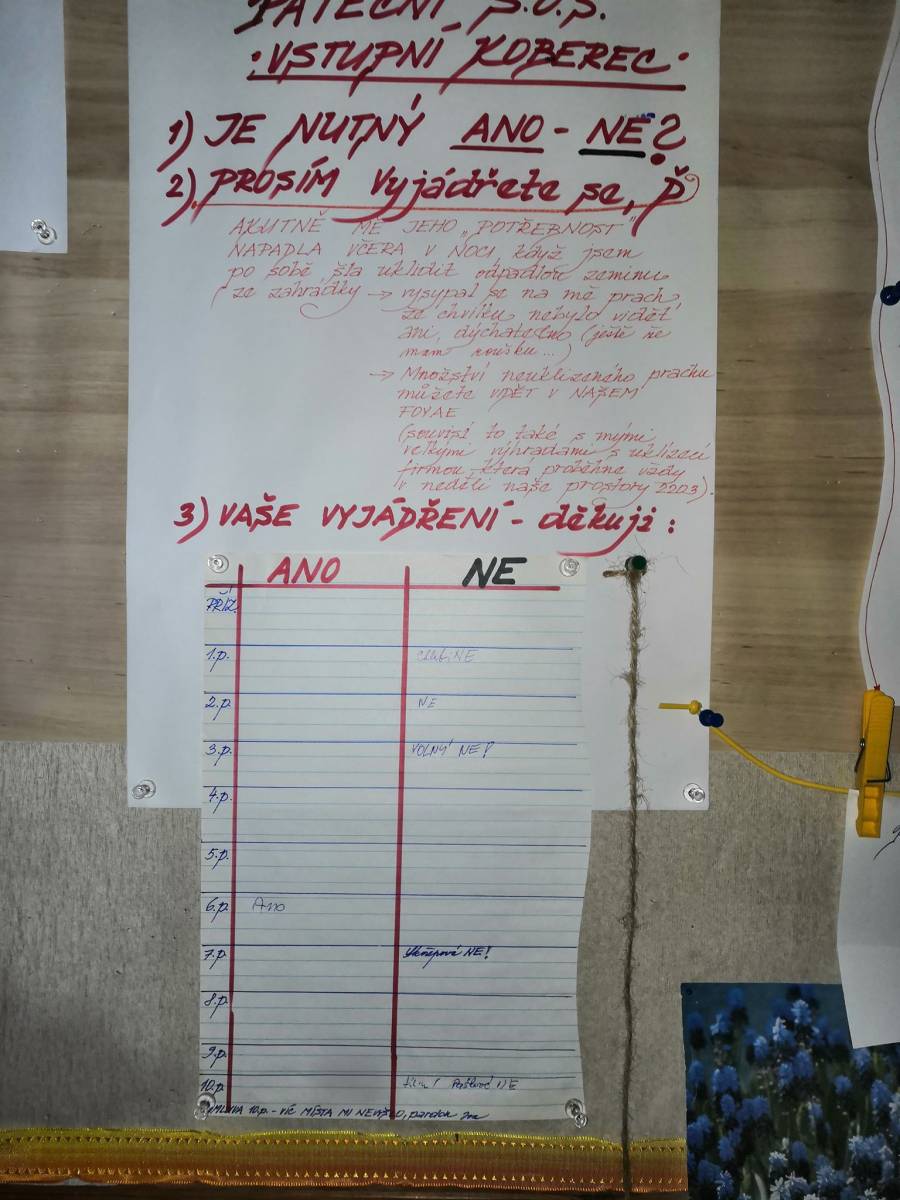 PÁTEČNÍ S.O.S.
·VSTUPNÍ KOBEREC·
1) JE NUTNÝ ANO - NE?
2) PROSÍM vyjádřete se, P̌
AKUTNĚ MĚ JEHO „POTŘEBNOST"
NAPADLA VČERA V NOCI když jsem
po sobě šla uklidit odpadlou zeminu
ze zahrádky → vysypal se na mě prach,
že chvilku nebylo vidět
ani, dýchatelno (ještě že
mám roušku...)
→ Množství neuklizeného prachu
můžete VIDĚT V NAŠEM
FOYAE
(souvisí to také s mými
velkými výhradami s uklízecí
firmou, která proběhne vždy
v neděli naše prostory 2203).
3) VAŠE VYJÁDŘENÍ - děkuji:
ANO NE
PŘÍZ.
1.p. NE
2.p. NE
3.p. VOLNÝ NE!
4.p.
5.p.
6.p. Ano
7.p. NE!
8.p.
9.p.
10.p. NE
10.p. - víc MÍSTA MI NEVYŠLO, pardon